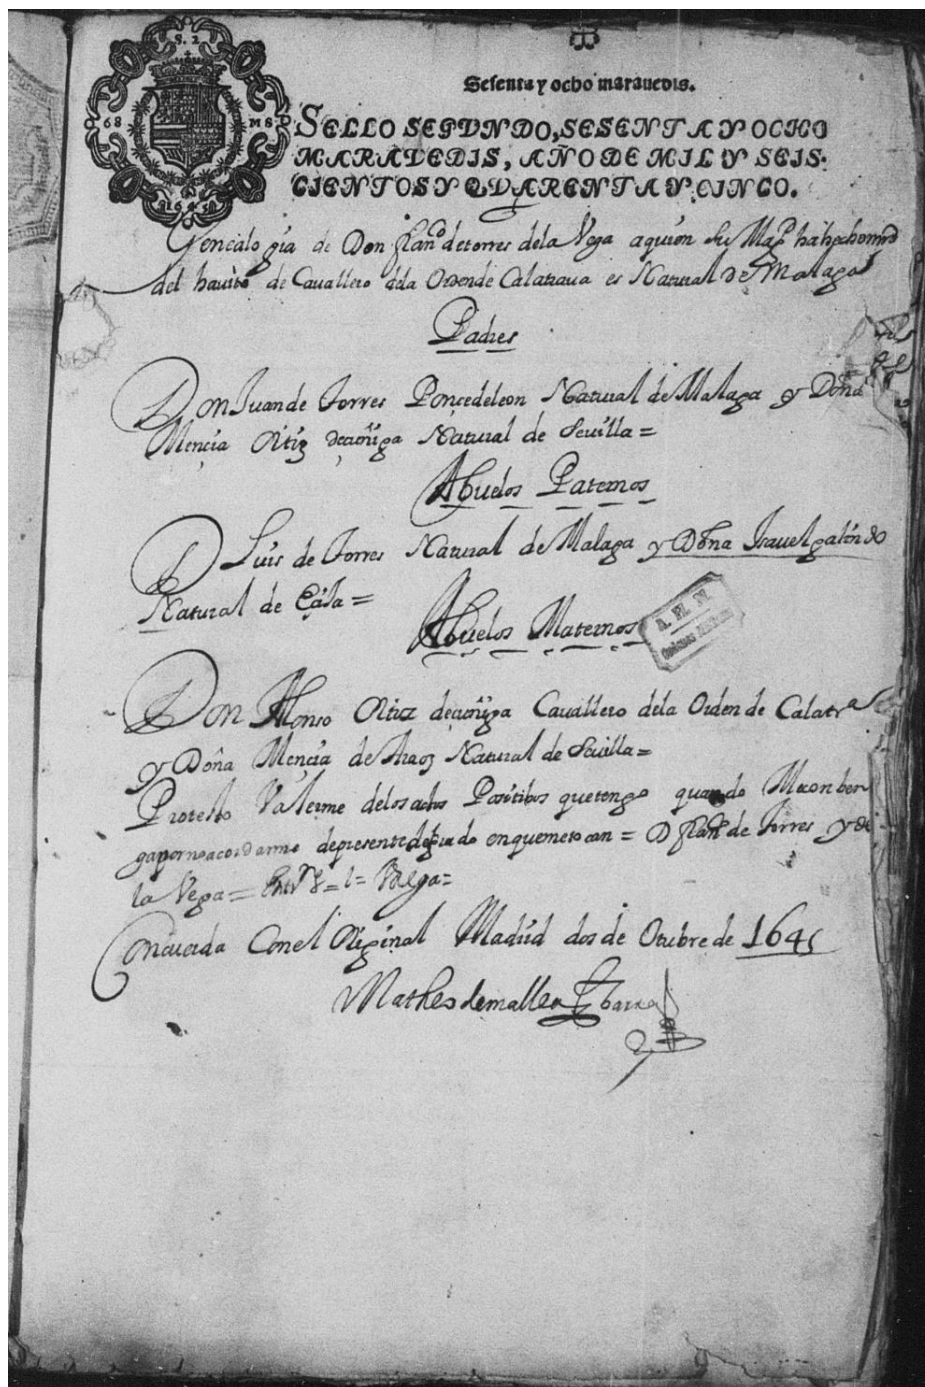 S. 2
68 MS
1645
Sesenta y ocho marauedis.
SELLO SEGVNDO, SESENTA Y OCHO
MARAVEDIS, AÑO DE MIL Y SEIS-
CIENTOS Y QVARENTA Y CINCO.
Genealogia de Don franco de torres dela Vega aquien Su Magd ha hecho mrd
del havito de Cavallero dela Orden de Calatrava es Natural de Malaga
Padres
Don Juan de Torres Ponçe de leon Natural de Malaga y Doña
Mençia Ortiz deçuñiga Natural de Sevilla =
Abuelos Paternos
D Luis de Torres Natural de Malaga y Doña Isavel galindo
Natural de
Abuelos Maternos
Don Alonso Ortiz deçuñiga Cavallero dela Orden de Calatra
y Doña Mençia de Araoz Natural de Sevilla =
Protesto Valerme delos actos Positibos que tengo quando Me conben
ga por no acordarme de presente del grado en que me tocan = D franco de Torres y de
la Vega =
Concuerda Con el Original Madrid dos de Otubre de 1645
Matheo de mallea Ybarra